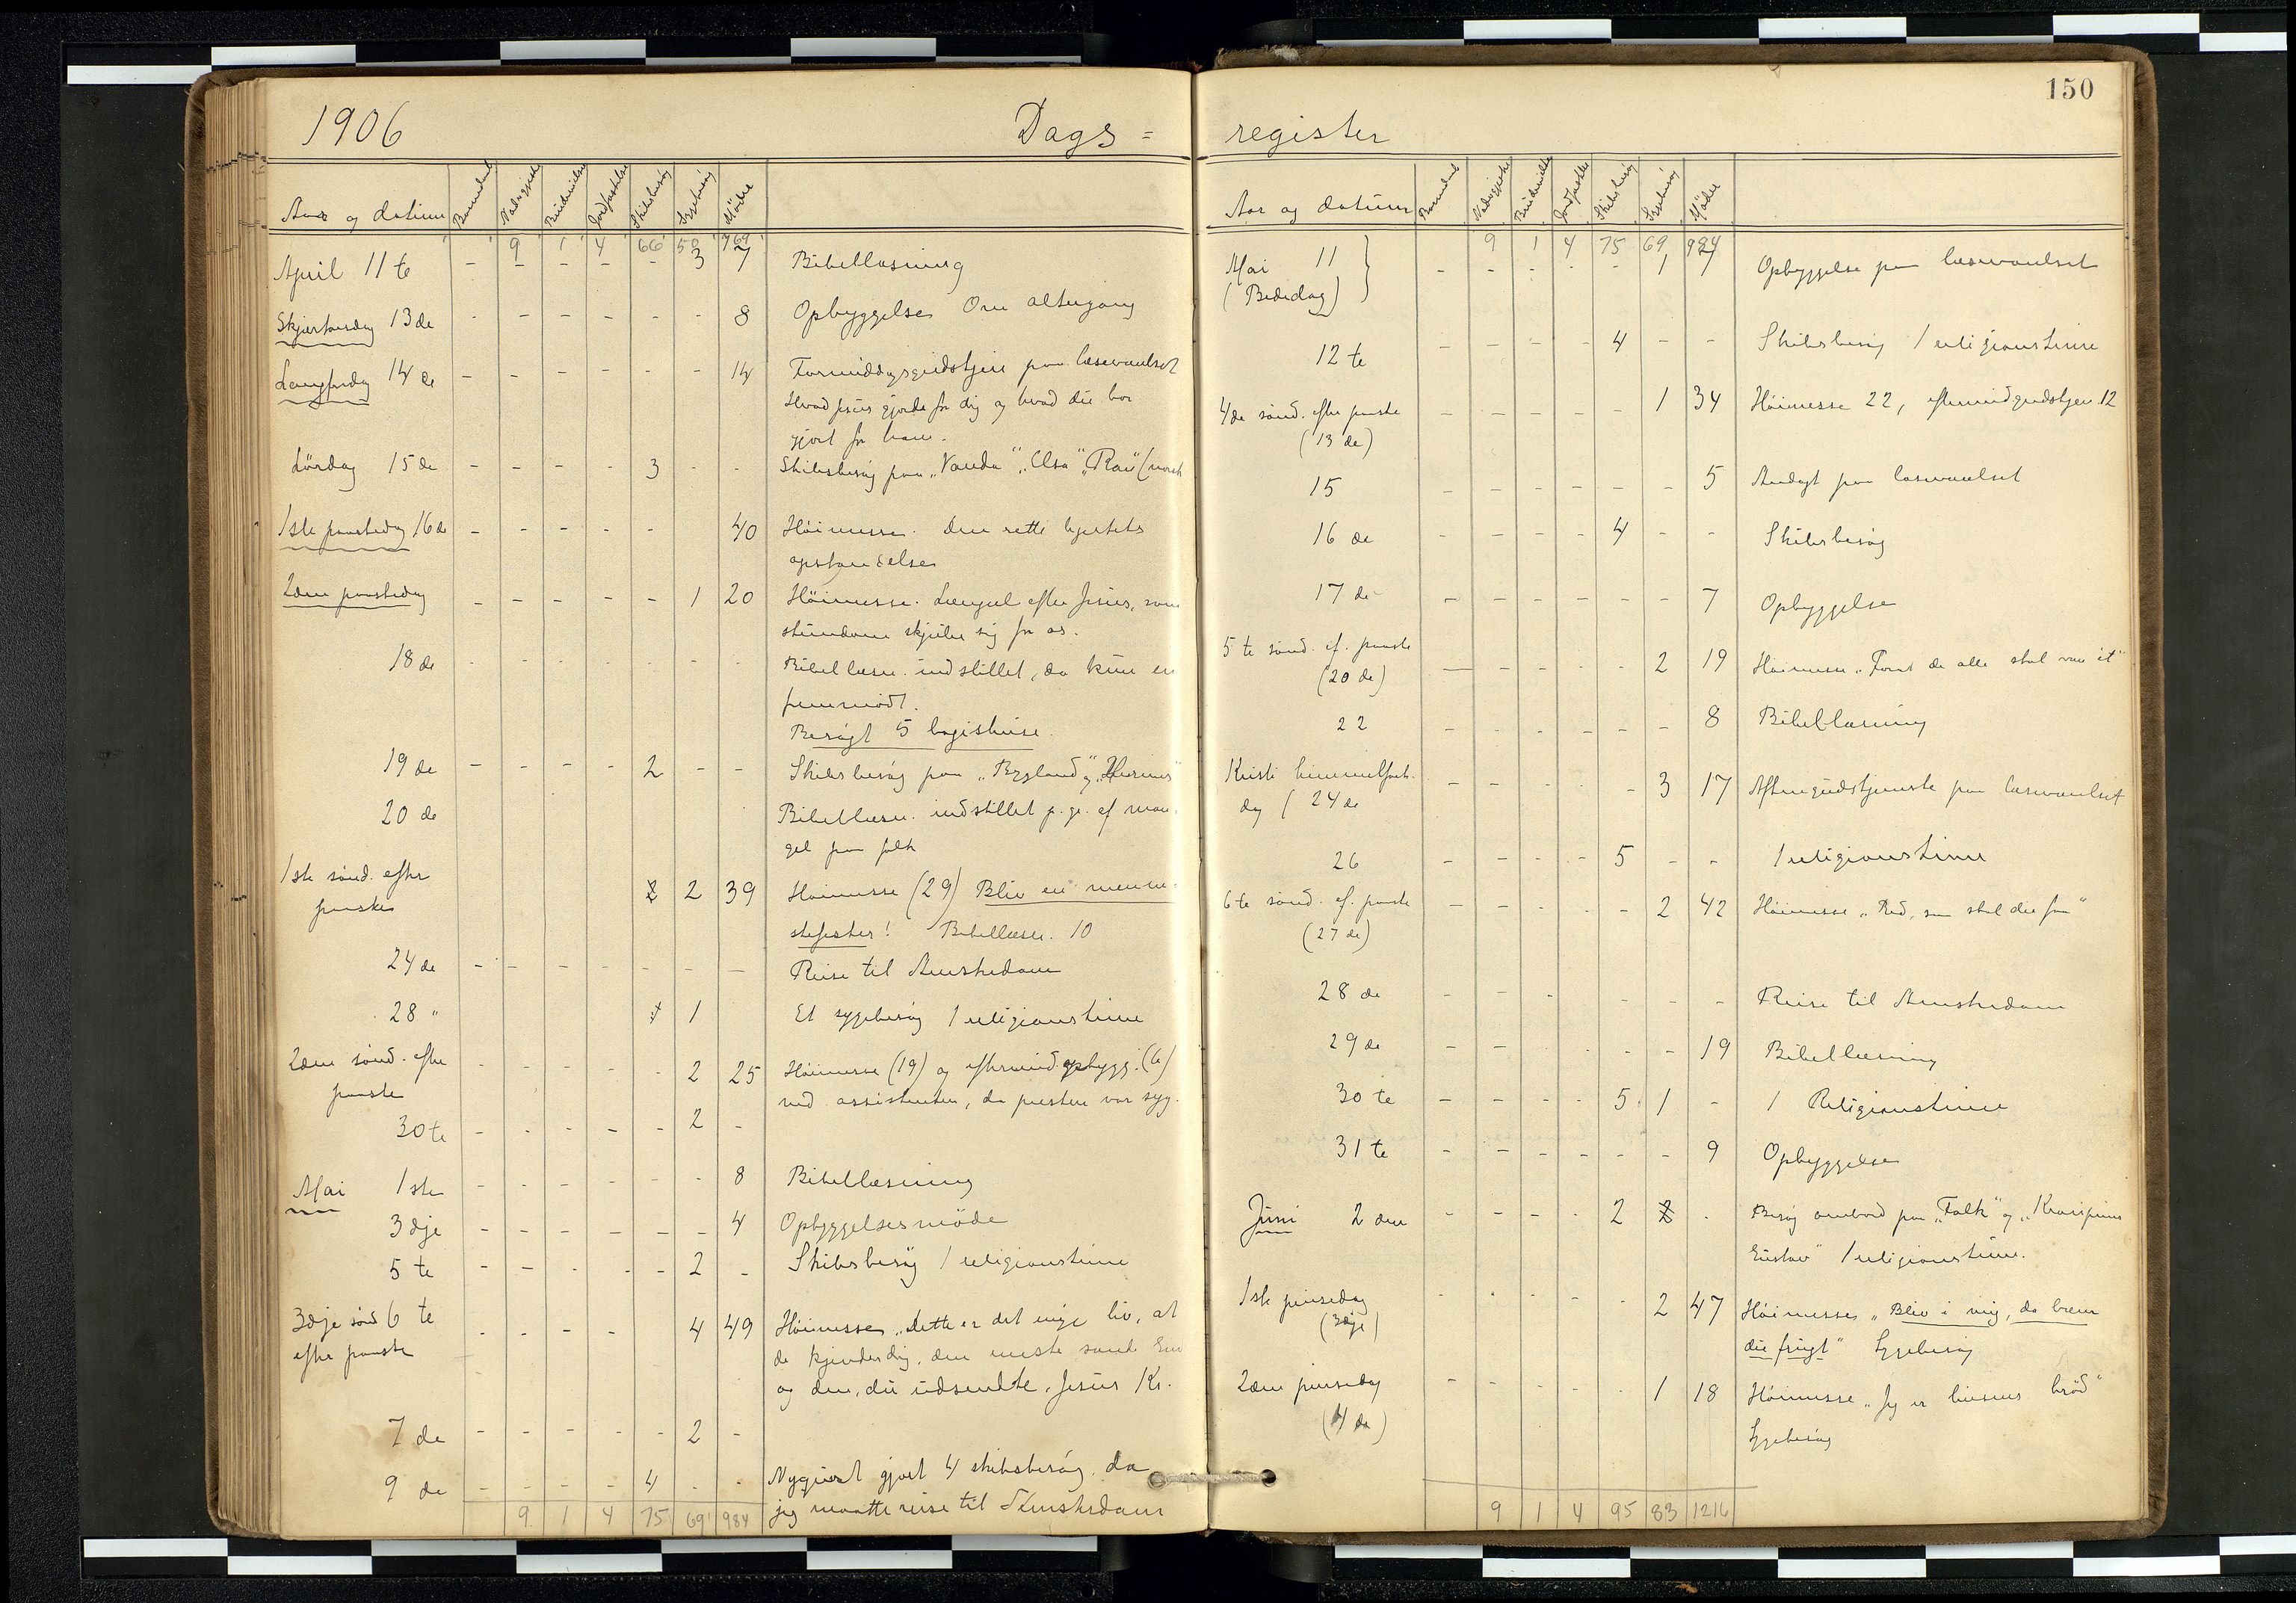 1906 Dags=
Aar og datum Barnedaab Nadvergjæster Brudevielser Jordfæstelse Skibsbesøg Sygebesøg Møder
9 1 4 66 50 769
April 11te - - - - - 3 7 Bibellæsning
Skjærtorsdag 13de - - - - - - 8 Opbyggelse Om altergang
Langfredag 14de - - - - - - 14 Formiddagsgudstjen paa læseværelset
Hvad Jesus gjorde for dig og hvad du har
gjort for ham.
Lørdag 15de - - - - 3 - - Skibsbesøg paa „Vanda" „Elsa" „Ran" (norsk
1ste paaskedag 16de - - - - - 40 Høimesse. Den rette hjertets
opstandelse
2den paaskedag - - - - - 1 20 Høimesse. Længsel efter Jesus, som
stundom skjuler sig for os.
18de - - - - - - - Bibellæsn. indstillet, da kun en
fremmødt.
Besøgt 5 logishuse.
19de - - - - 2 - - Skibsbesøg paa „Bygland" og „Hermes"
20de Bibellæsn. indstillet p. gr. af man-
gel paa folk
1ste sønd. efter
paaske 2 2 39 Høimesse (29) Bliv en menne-
skefisker! Bibellæsn. 10
24de - - - - - - - Reise til Amsterdam
28 " 1 Et sygebesøg 1 religionstime
2den sønd. efter
paaske - - - - - 2 25 Høimesse (19) og eftermid.opbygg. (6)
ved assistenten, da presten var syg.
30te - - - - - 2 -
Mai 1ste - - - - - - 8 Bibellæsning
3dje - - - - - - 4 Opbyggelsesmøde
5te - - - - - 2 - Skibsbesøg 1 religionstime
3dje sønd 6te
efter paaske - - - - 4 49 Høimesse „Dette er det evige liv, at
de kjender dig, den eneste sande Gud
og den, du udsendte, Jesus Kr.
7de - - - - - 2 -
9de - - - - 4 - - gjort 4 skibsbesøg, da
jeg maatte reise til Amsterdam
9 1 4 75 69 984
150
register
Aar og datum Barnedaab Nadvergjæster Brudevielse Jordfæstelse Skibsbesøg Sygebesøg Møder
9 1 4 75 69 984
Mai 11 - - - - - 1 7 Opbyggelse paa læseværelset
(Bededag)
12te - - - - 4 - - Skibsbesøg 1 religionstime
4de sønd. efter paaske
(13de) - - - - - 1 34 Høimesse 22, eftermidgudstjen 12
15 - - - - - - 5 Andagt paa læseværelset
16de - - - - 4 - - Skibsbesøg
17de - - - - - - 7 Opbyggelse
5te sønd. ef. paaske
(20de) - - - - - 2 19 Høimesse „Forat de alle skal være ét"
22 - - - - - - 8 Bibellæsning
Kristi himmelfart-
dag (24de - - - - - 3 17 Aftengudstjeneste paa læseværelset
26 - - - - 5 - - 1 religionstime
6te sønd. ef. paaske
(27de) - - - - - 2 42 Høimesse „Bed, saa skal du faa"
28de - - - - - - Reise til Amsterdam
29de - - - - - - 19 Bibellæsning
30te - - - - 5 1 - 1 Religionstime
31te - - - - - - 9 Opbyggelse
Juni 2den - - - - 2 2 - Besøg ombord paa „Falk" og „Kronprins
Gustav" 1 religionstime.
1ste pinsedag
(3dje) - - - - - 2 47 Høimesse „Bliv i mig, da bærer
du frugt" Sygebesøg
2den pinsedag
(4de) - - - - - 1 18 Høimesse „Jeg er livsens brød"
Sygebesøg
9 1 4 95 83 1216